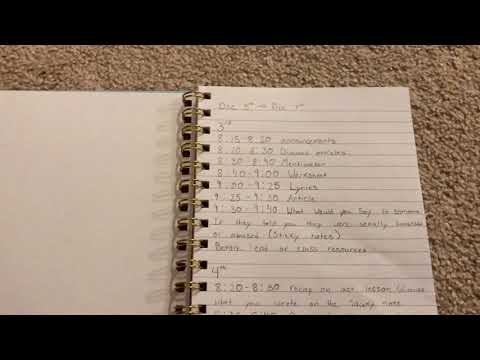 Dec 3rd → Dec 7th
3rd
8:15-8:20 announcements
8:20-8:30 Discuss articles
8:30-8:40 Mentimeter
8:40-9:00 Worksheet
9:00-9:25 Lyrics
9:25-9:30 Article
9:30-9:40 What would you say to someone
if they told you they were sexually harassed
or abused (Sticky notes)
Before end of class resources
4th
8:20-8:30 recap on last lesson
what you wrote on the sticky note